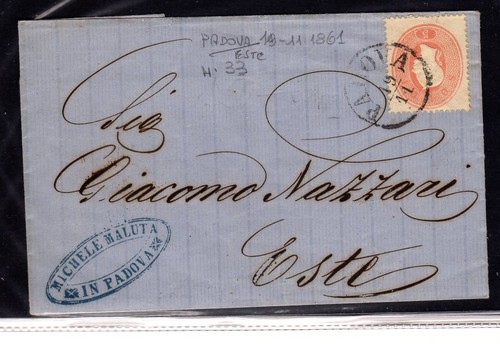 PADOVA 19-11 1861
ESTE
N: 33
PADOVA
19/11
Sig
Giacomo Nazzari
Este
MICHELE MALUTA
IN PADOVA